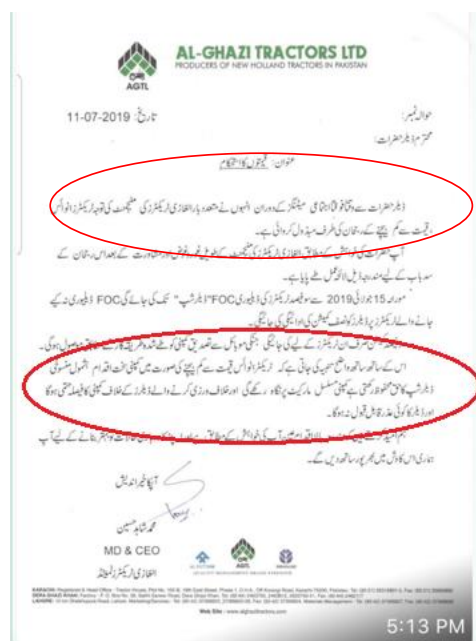 AL-GHAZI TRACTORS LTD
PRODUCERS OF NEW HOLLAND TRACTORS IN PAKISTAN
AGTL
حوالہ نمبر:
تاریخ: 11-07-2019
محترم ڈیلر حضرات:
عنوان: قیمتوں کا استحکام
ڈیلر حضرات سے وقتاً فوقتاً اجتماعی میٹنگز کے دوران انہوں نے متعدد بار الغازی ٹریکٹرز کی منیجمنٹ کی توجہ ٹریکٹرز انوائس
قیمت سے کم بیچنے کے رجحان کی طرف مبذول کروائی ہے۔
آپ حضرات کی کے مطابق الغازی ٹریکٹرز کی منیجمنٹ کے طویل غور و خوض اور مشاورت کے بعد اس رجحان کے
سدباب کے لیے مندرجہ ذیل لائحہ عمل طے پایا ہے۔
مورخہ 15 جولائی 2019 سے سو فیصد ٹریکٹرز کی ڈیلیوری FOC "ڈیلر شپ" تک کی جائے گی FOC ڈیلیوری نہ کیے
جانے والے ٹریکٹرز پر ڈیلرز کو نصف کمیشن کی ادائیگی کی جائیگی۔
صرف ان ٹریکٹرز کے لیے کی جائیگی جنکی موبائل سے تصدیق کمپنی کو طے شدہ طریقہ کار کے مطابق موصول ہوگی۔
اس کے ساتھ ساتھ واضح کی جاتی ہے کہ ٹریکٹرز انوائس قیمت سے کم بیچنے کی صورت میں کمپنی سخت اقدام بشمول منسوخی
ڈیلر شپ کا حق محفوظ رکھتی ہے کمپنی مسلسل مارکیٹ پر نگاہ رکھے گی اور خلاف ورزی کرنے والے ڈیلرز کے خلاف کمپنی کا فیصلہ حتمی ہوگا
اور ڈیلر کا کوئی عذر قابل قبول نہ ہوگا۔
ہم امید کرتے ہیں کہ آپ کی خواہش کے مطابق کو بہتر بنانے کے لیے آپ
ہماری اس کاوش میں بھرپور ساتھ دیں گے۔
آپکا خیر اندیش
محمد شاہد حسین
MD & CEO
الغازی ٹریکٹرز لمیٹڈ
Web Site : www.alghazitractors.com
5:13 PM